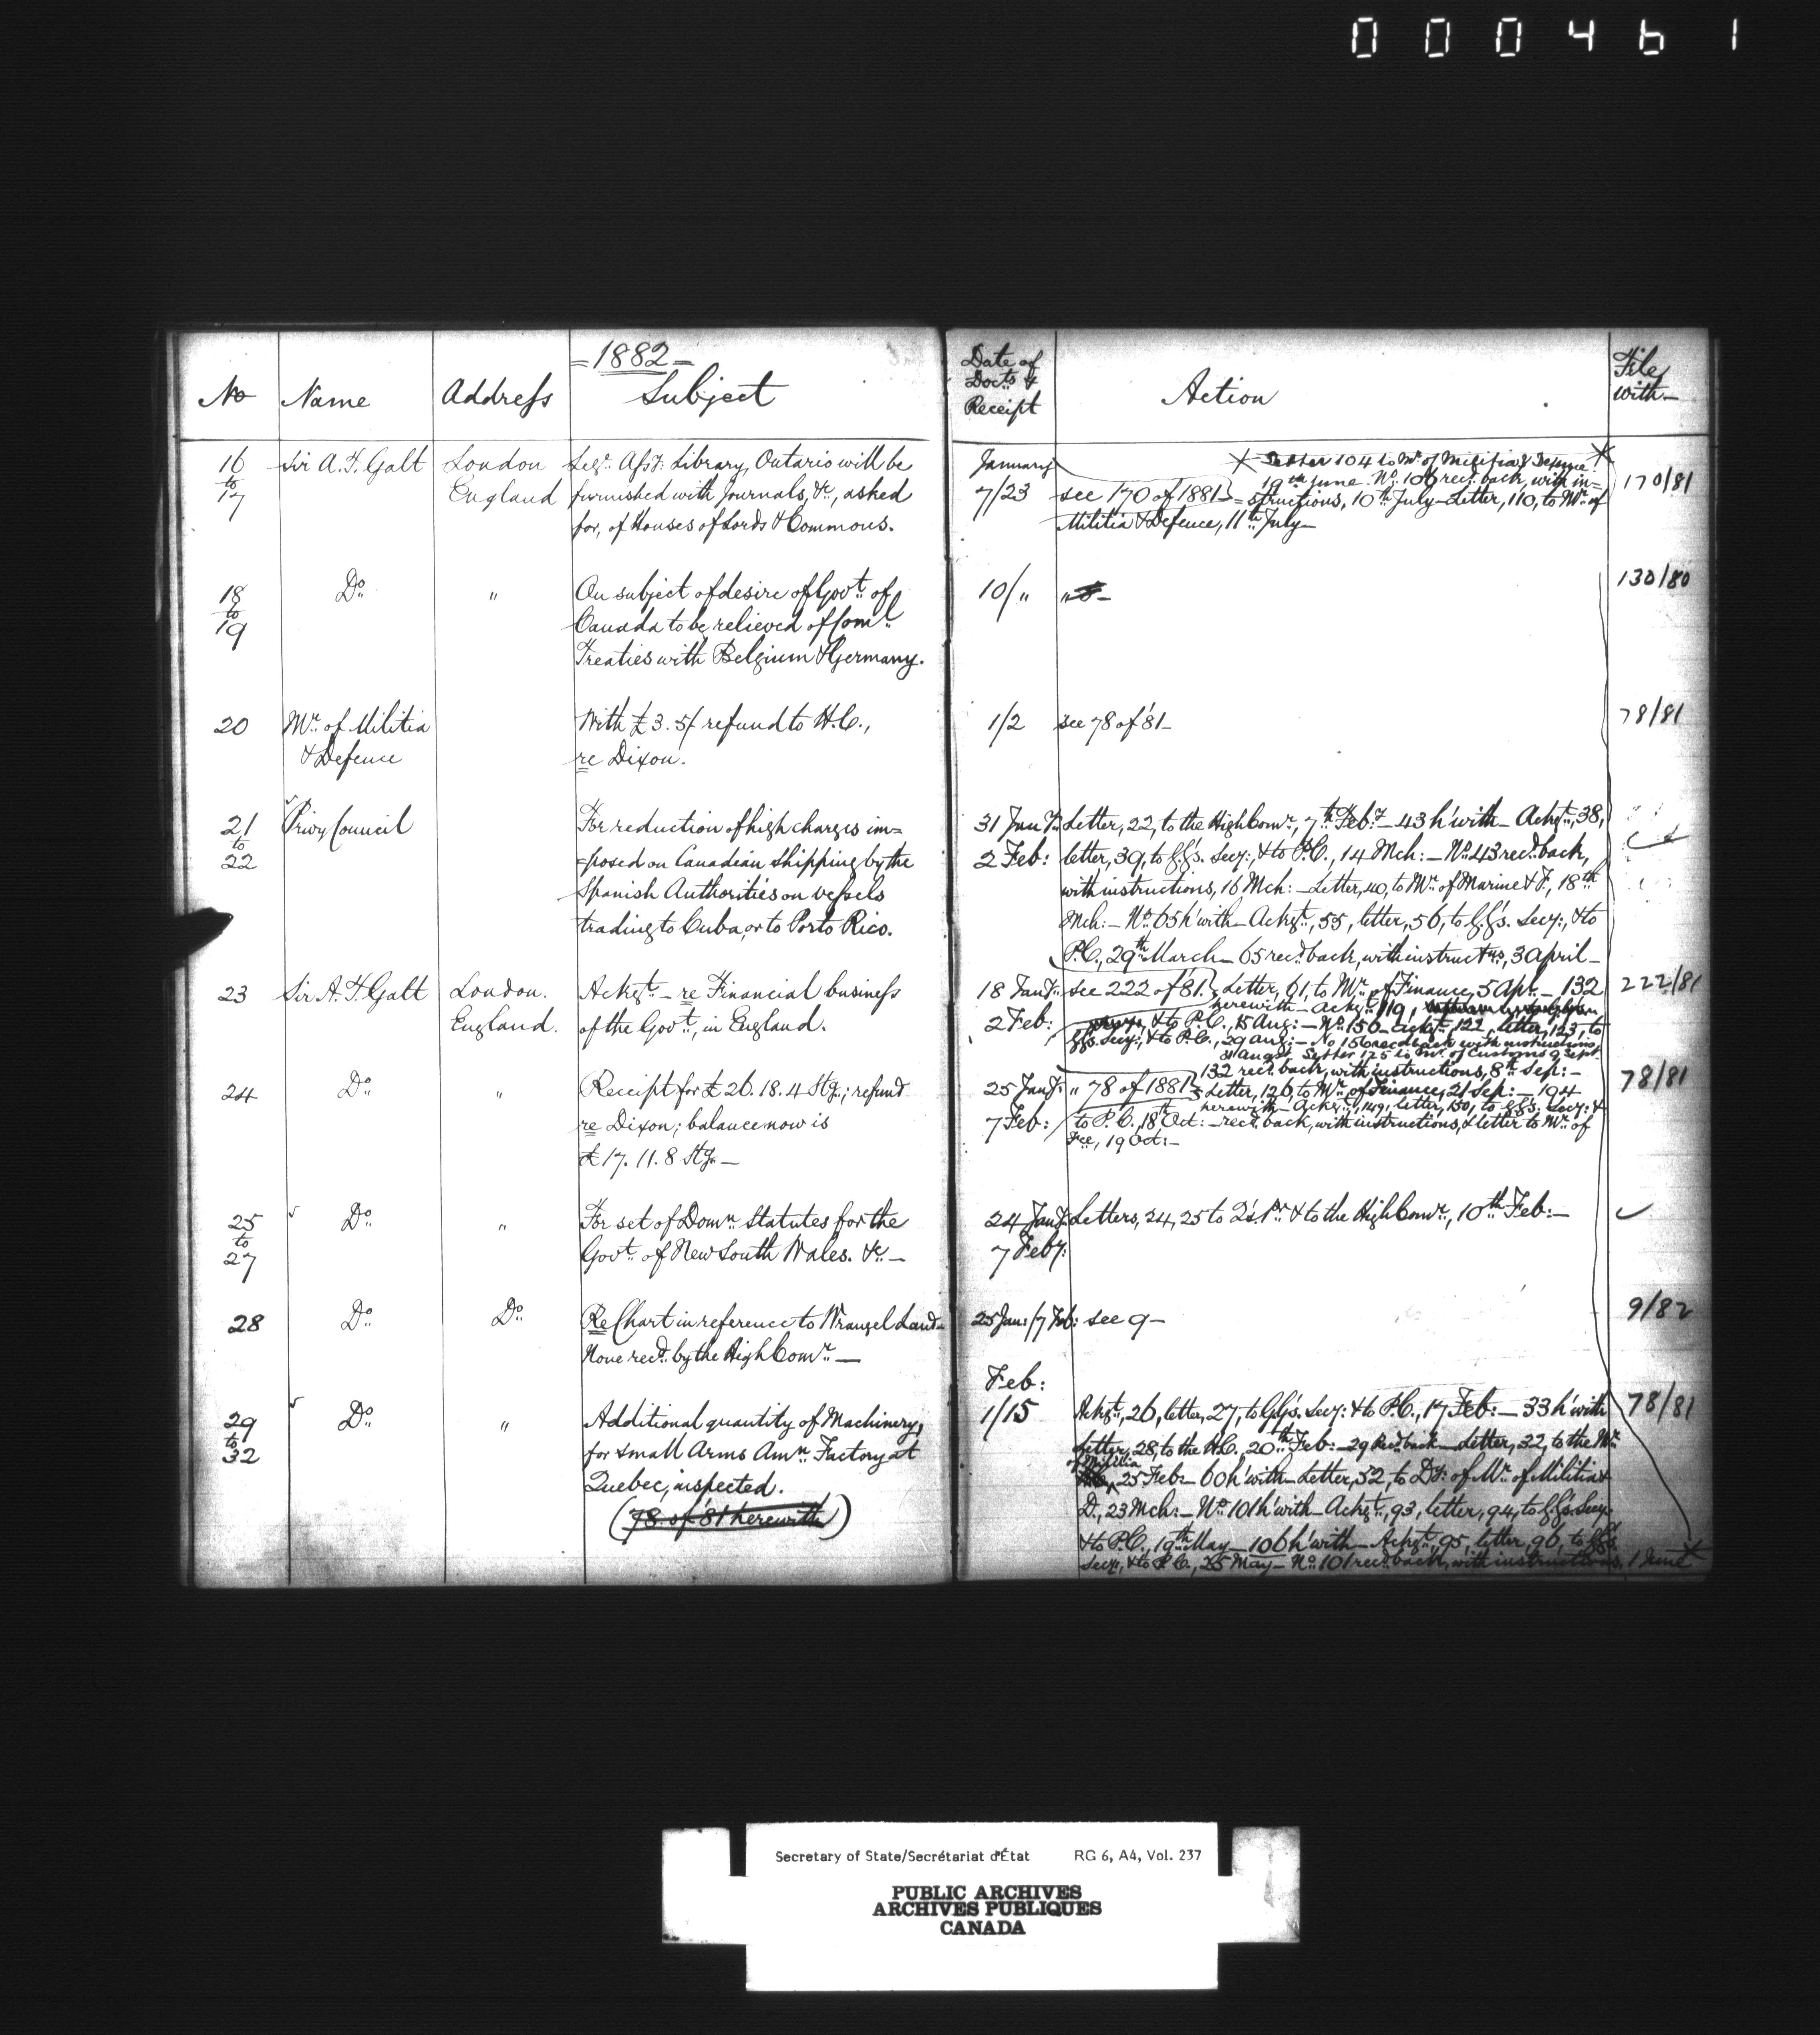 000461
=1882=
No Name Address Subject
Date of Docts & Receipt Action File with
16 to 17 Sir A. T. Galt London England
Legr. Asst: Library, Ontario will be
furnished with Journals, &c, asked
for, of Houses of Lords & Commons.
January
7/23 see 170 of 1881
Letter 104 to Mr of Militia & Defence
19th June No 106 recd. back, with in=
=structions, 10th July Letter, 110, to Mr of
Militia & Defence, 11th July
170/81
18 to 19 Do "
On subject of desire of Govt. of
Canada to be relieved of Coml.
Treaties with Belgium & Germany.
10/" "
130/80
20 Mr. of Militia & Defence
With £3.5/ refund to H.C.,
re Dixon.
1/2 see 78 of '81
78/81
21 to 22 Privy Council
For reduction of high charges im=
=posed on Canadian shipping by the
Spanish Authorities on vessels
trading to Cuba, or to Porto Rico.
31 Jany. Letter, 22, to the High Comr., 7th Feby. 43 h'with Ackgt., 38,
2 Feb: letter, 39, to G.G's. Secy:, & to P.C., 14 Mch: No. 43 recd. back,
with instructions, 16 Mch: Letter, 40, to Mr. of Marine & F., 18th
Mch: No. 65 h'with Ackgt., 55, letter, 56, to G.G's. Secy:, & to
P.C., 29th March 65 recd. back, with instructns., 3 April
23 Sir A. T. Galt London. England.
Ackgt. re Financial business
of the Govt., in England.
18 Jany. see 222 of 81. Letter, 61, to Mr. of Finance, 5 Apr. 132
2 Feb: herewith Ackgt. 119,
& to P.C., 15 Aug: No. 150 Ackgt. 122, letter, 123, to
G.G's. Secy:, & to P.C., 29 Aug: No 150 recd back with instructions,
31 August. Letter 125 to Mr. of Customs 9 Sept.
222/81
24 Do "
Receipt for £26.18.4 Stg.; refund
re Dixon; balance now is
£17.11.8 Stg.
132 recd. back, with instructions, 8th Sep:
25 Jany: " 78 of 1881 Letter, 126, to Mr. of Finance, 21 Sep: 194
herewith Ackgt. 149, letter, 150, to G.G's. Secy: &
7 Feb: to P.C. 18th Oct: recd. back, with instructions, & letter to Mr. of
Fce, 19 Oct:
78/81
25 to 27 Do "
For set of Domn. Statutes for the
Govt. of New South Wales. &c
24 Jany. Letters, 24, 25 to Q's. Pr. & to the High Comr., 10th Feb:
7 Feby:
28 Do Do
Re Chart in reference to Wrangel Land
None recd. by the High Comr.
25 Jan:/7 Feb: see 9
9/82
29 to 32 Do "
Additional quantity of Machinery,
for Small Arms Amn. Factory at
Quebec, inspected.
(78 of '81 herewith)
Feb:
1/15 Ackgt., 26, letter, 27, to G.G's. Secy: & to P.C., 17 Feb: 33 h'with
Letter, 28, to the H.C. 20th Feb: 29 Recd. back Letter, 32, to the Mr.
of Militia 25 Feb: 60 h'with Letter, 52, to Dy: of Mr. of Militia &
D., 23 Mch: No. 101 h'with Ackgt., 93, letter, 94, to G.G's. Secy:
& to P.C., 19th May 106 h'with Ackgt., 95, letter, 96, to G.G's.
Secy:, & to P.C., 25 May No. 101 recd. back, with instructions, 1 June
78/81
Secretary of State/Secrétariat d'État RG 6, A4, Vol. 237
PUBLIC ARCHIVES
ARCHIVES PUBLIQUES
CANADA